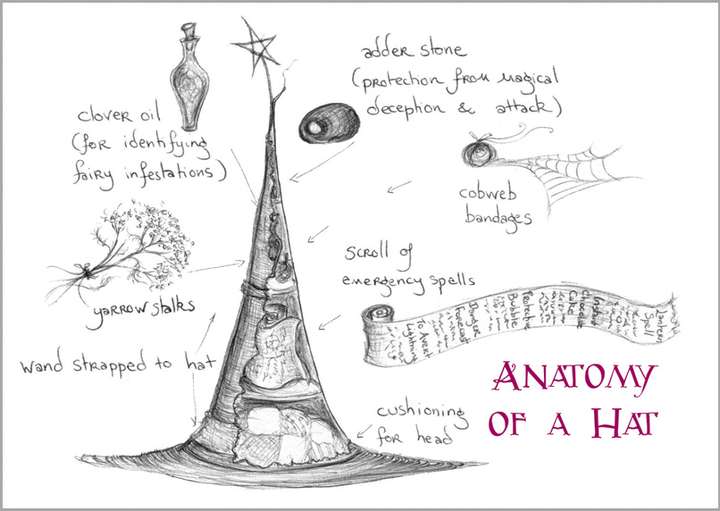 clover oil
(for identifying
fairy infestations)
adder stone
(protection from magical
deception & attack)
cobweb
bandages
yarrow stalks
scroll of
emergency spells
Lantern
Spell
Instant
Chocolate
Cake
Protective
Bubble
Danger
Forecast
To Avert
Lightning
wand strapped to hat
cushioning
for head
ANATOMY
OF A HAT